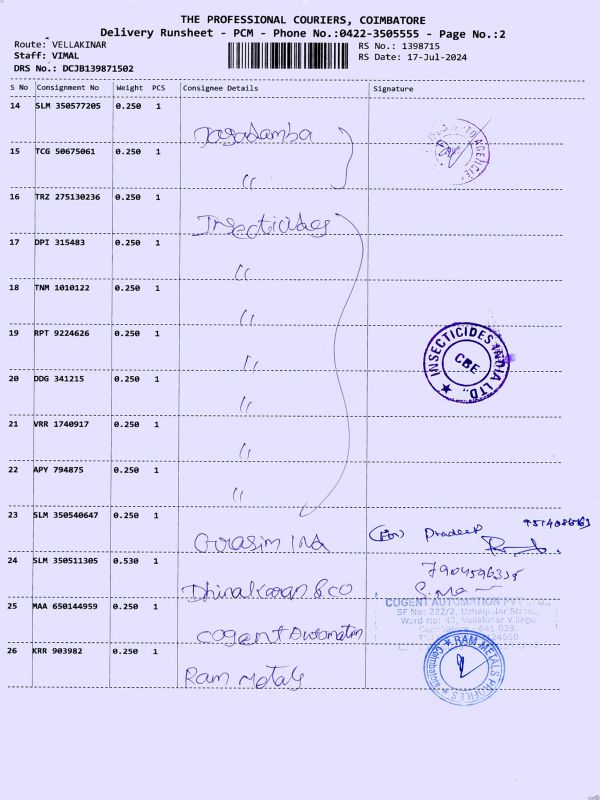 THE PROFESSIONAL COURIERS, COIMBATORE
Delivery Runsheet - PCM - Phone No.:0422-3505555 - Page No.:2
Route: VELLAKINAR
RS No.: 1398715
Staff: VIMAL
RS Date: 17-Jul-2024
DRS No.: DCJB139871502
S No Consignment No Weight PCS Consignee Details Signature
14 SLM 350577205 0.250 1
Jagadamba
15 TCG 50675061 0.250 1
"
16 TRZ 275130236 0.250 1
Insecticides
17 DPI 315483 0.250 1
"
18 TNM 1010122 0.250 1
"
19 RPT 9224626 0.250 1
"
INSECTICIDES INDIA LTD.,
CBE
20 DDG 341215 0.250 1
"
21 VRR 1740917 0.250 1
"
22 APY 794875 0.250 1
"
23 SLM 350540647 0.250 1
Grasim Ind
Pradeep
24 SLM 350511305 0.530 1
7904596335
Dhinakaran & CO
25 MAA 650144959 0.250 1
COGENT AUTOMATION PVT LTD.,
SF No: 222/2, Uzhaipalar Street,
Word No: 43, Vellakinar Village
Coimbatore - 641 029.
Cogent Automation
26 KRR 903982 0.250 1
RAM METALS PROFILES
Coimbatore
Ram Metals